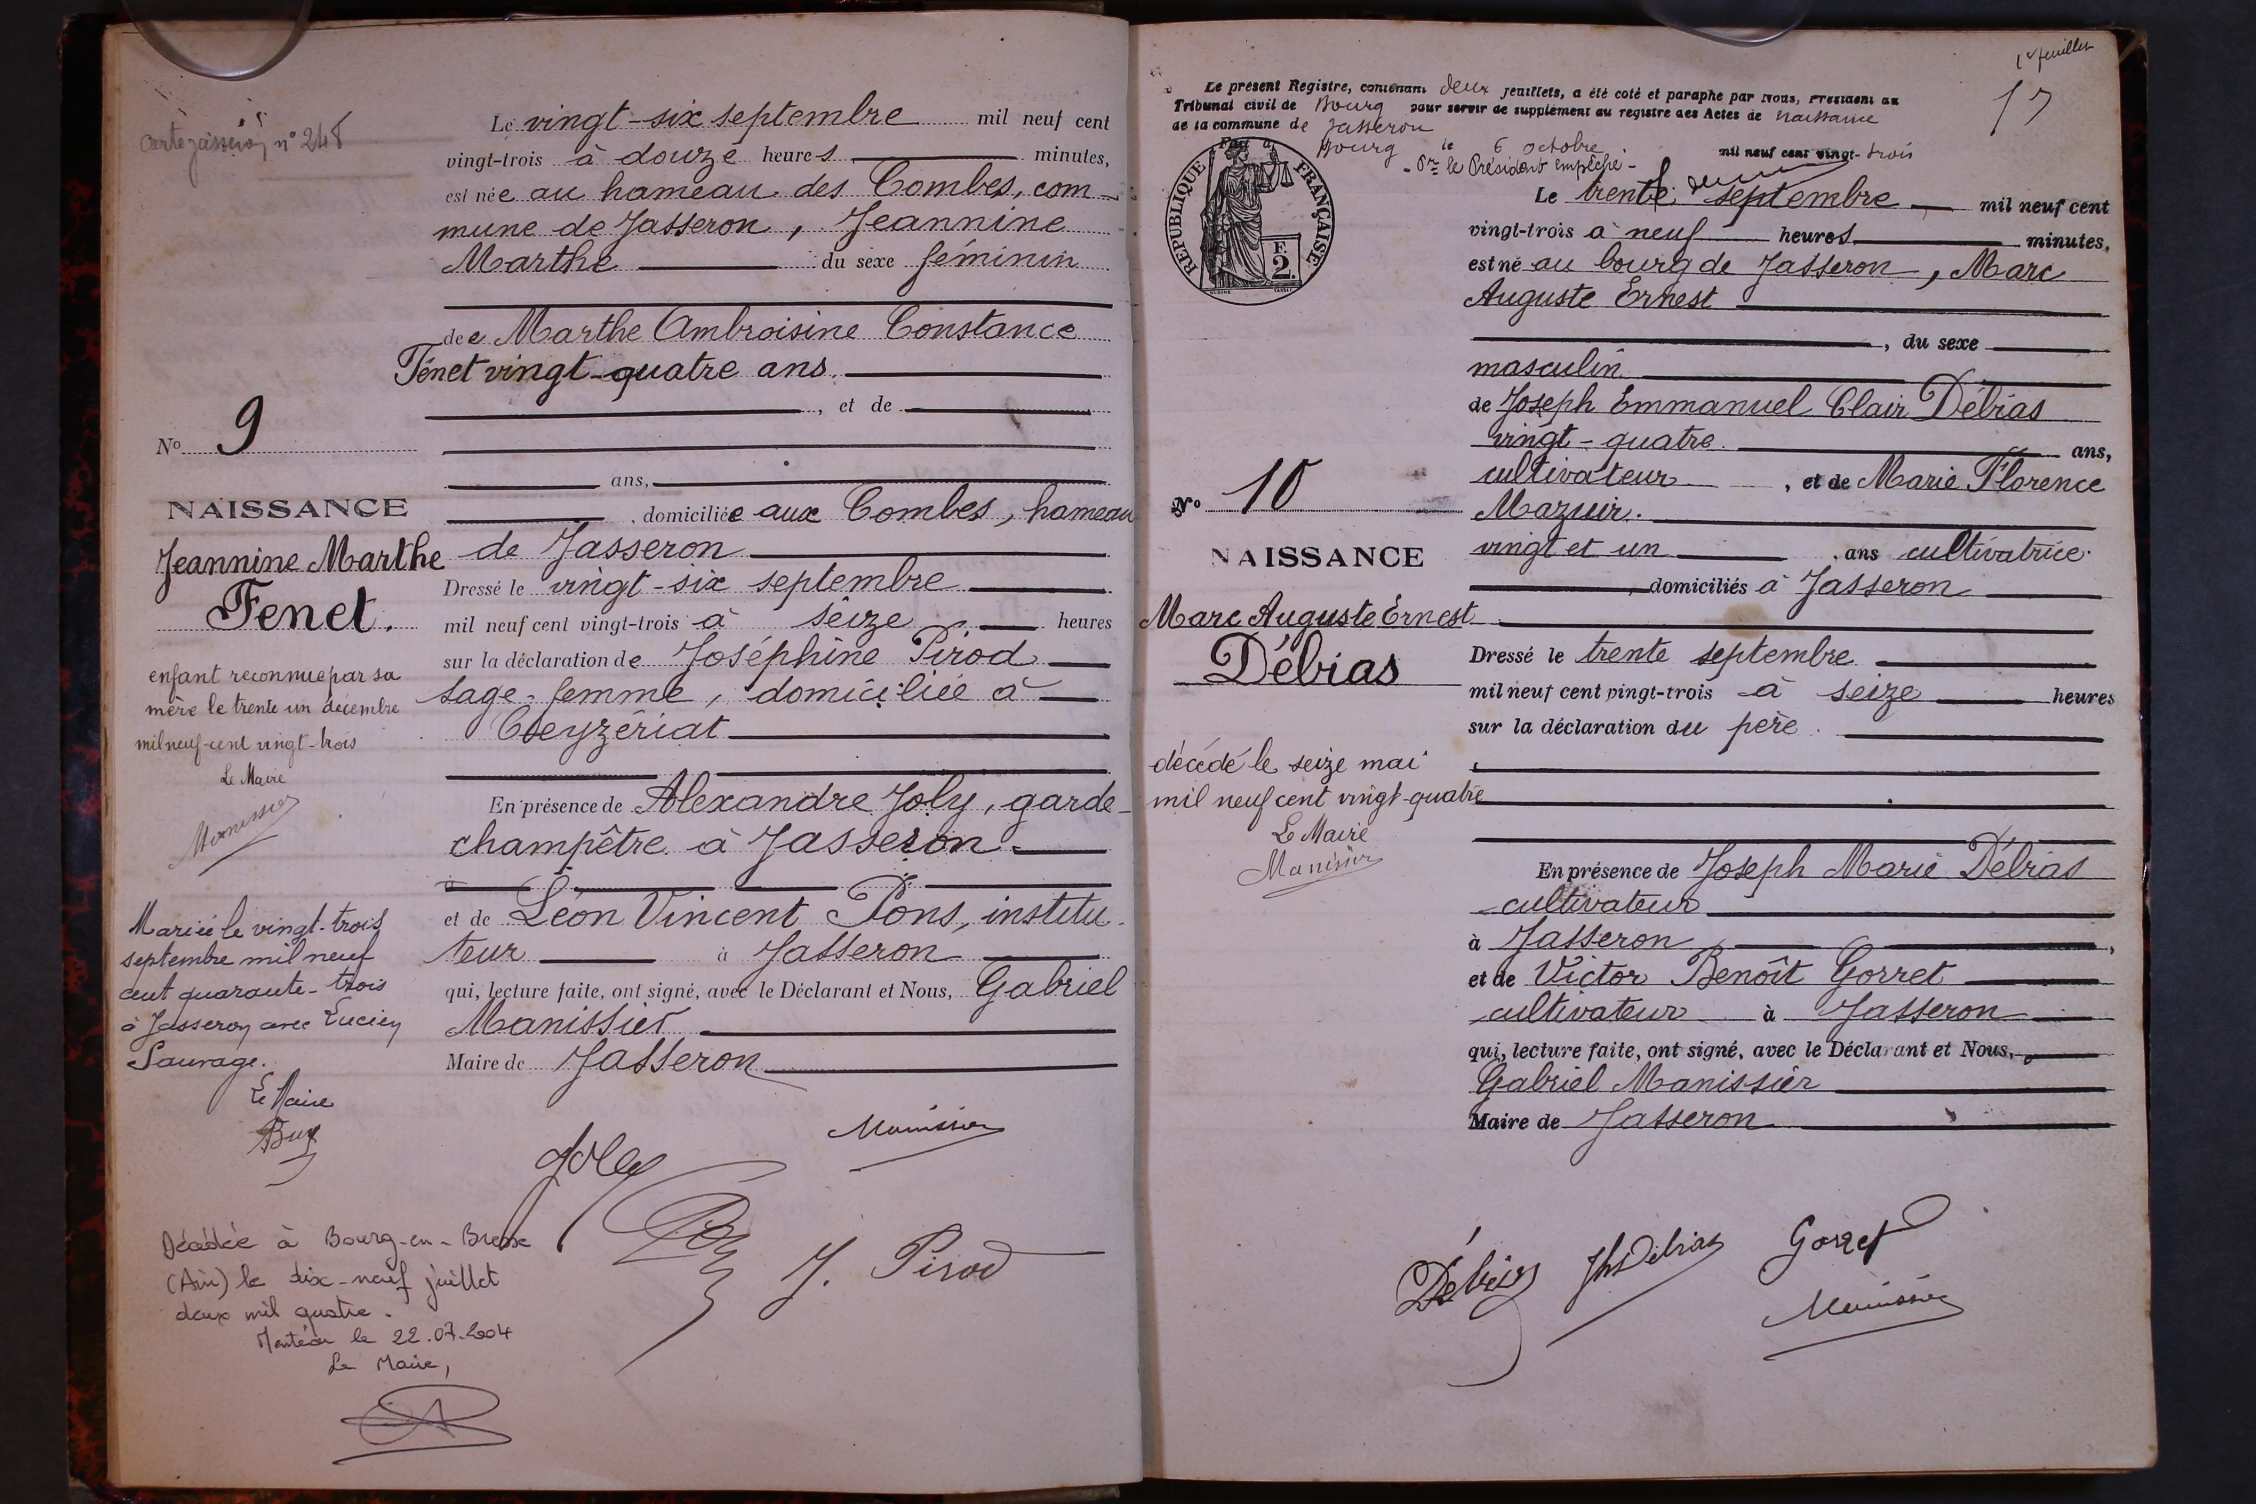 n° 248
Le vingt-six septembre mil neuf cent
vingt-trois à douze heures minutes,
est née au hameau des Combes, com-
mune de Jasseron, Jeannine
Marthe du sexe féminin
de Marthe Ambroisine Constance
Fénet vingt-quatre ans
, et de
No 9
ans,
NAISSANCE
, domiciliée aux Combes, hameau
Jeannine Marthe
de Jasseron
Fenet.
Dressé le vingt-six septembre
mil neuf cent vingt-trois à seize heures
sur la déclaration de Joséphine Pirod
sage-femme, domiciliée à
Ceyzériat
enfant reconnue par sa
mère le trente un décembre
mil neuf cent vingt-trois
Le Maire
Manissier
En présence de Alexandre Joly, garde-
champêtre à Jasseron
et de Léon Vincent Pons, institu-
teur à Jasseron
qui, lecture faite, ont signé, avec le Déclarant et Nous, Gabriel
Manissier
Maire de Jasseron
Mariée le vingt-trois
septembre mil neuf
cent quarante-trois
à Jasseron avec Lucien
Sauvage.
Le Maire
Manissier
Joly
Pons
J. Pirod
Décédée à Bourg-en-Bresse
(Ain) le dix-neuf juillet
deux mil quatre.
le 22.07.2004
Le Maire,
1er feuillet
17
Le présent Registre, contenant deux feuillets, a été coté et paraphé par Nous, Président du
Tribunal civil de Bourg pour servir de supplément au registre des Actes de naissance
de la commune de Jasseron
Bourg le 6 octobre mil neuf cent vingt-trois
Pr le Président empêché
RÉPUBLIQUE FRANÇAISE
2F.
Le trente septembre mil neuf cent
vingt-trois à neuf heures minutes,
est né au bourg de Jasseron, Marc
Auguste Ernest
, du sexe
masculin
de Joseph Emmanuel Clair Débias
vingt-quatre ans,
cultivateur, et de Marie Florence
No 10
Mazuir.
NAISSANCE
vingt et un, ans cultivatrice
, domiciliés à Jasseron
Marc Auguste Ernest
Débias
Dressé le trente septembre
mil neuf cent vingt-trois à seize heures
sur la déclaration du père
décédé le seize mai
mil neuf cent vingt-quatre
Le Maire
Manissier
En présence de Joseph Marie Débias
cultivateur
à Jasseron,
et de Victor Benoît Gorret
cultivateur à Jasseron
qui, lecture faite, ont signé, avec le Déclarant et Nous,
Gabriel Manissier
Maire de Jasseron
Débias
Jh Débias
Gorret
Manissier